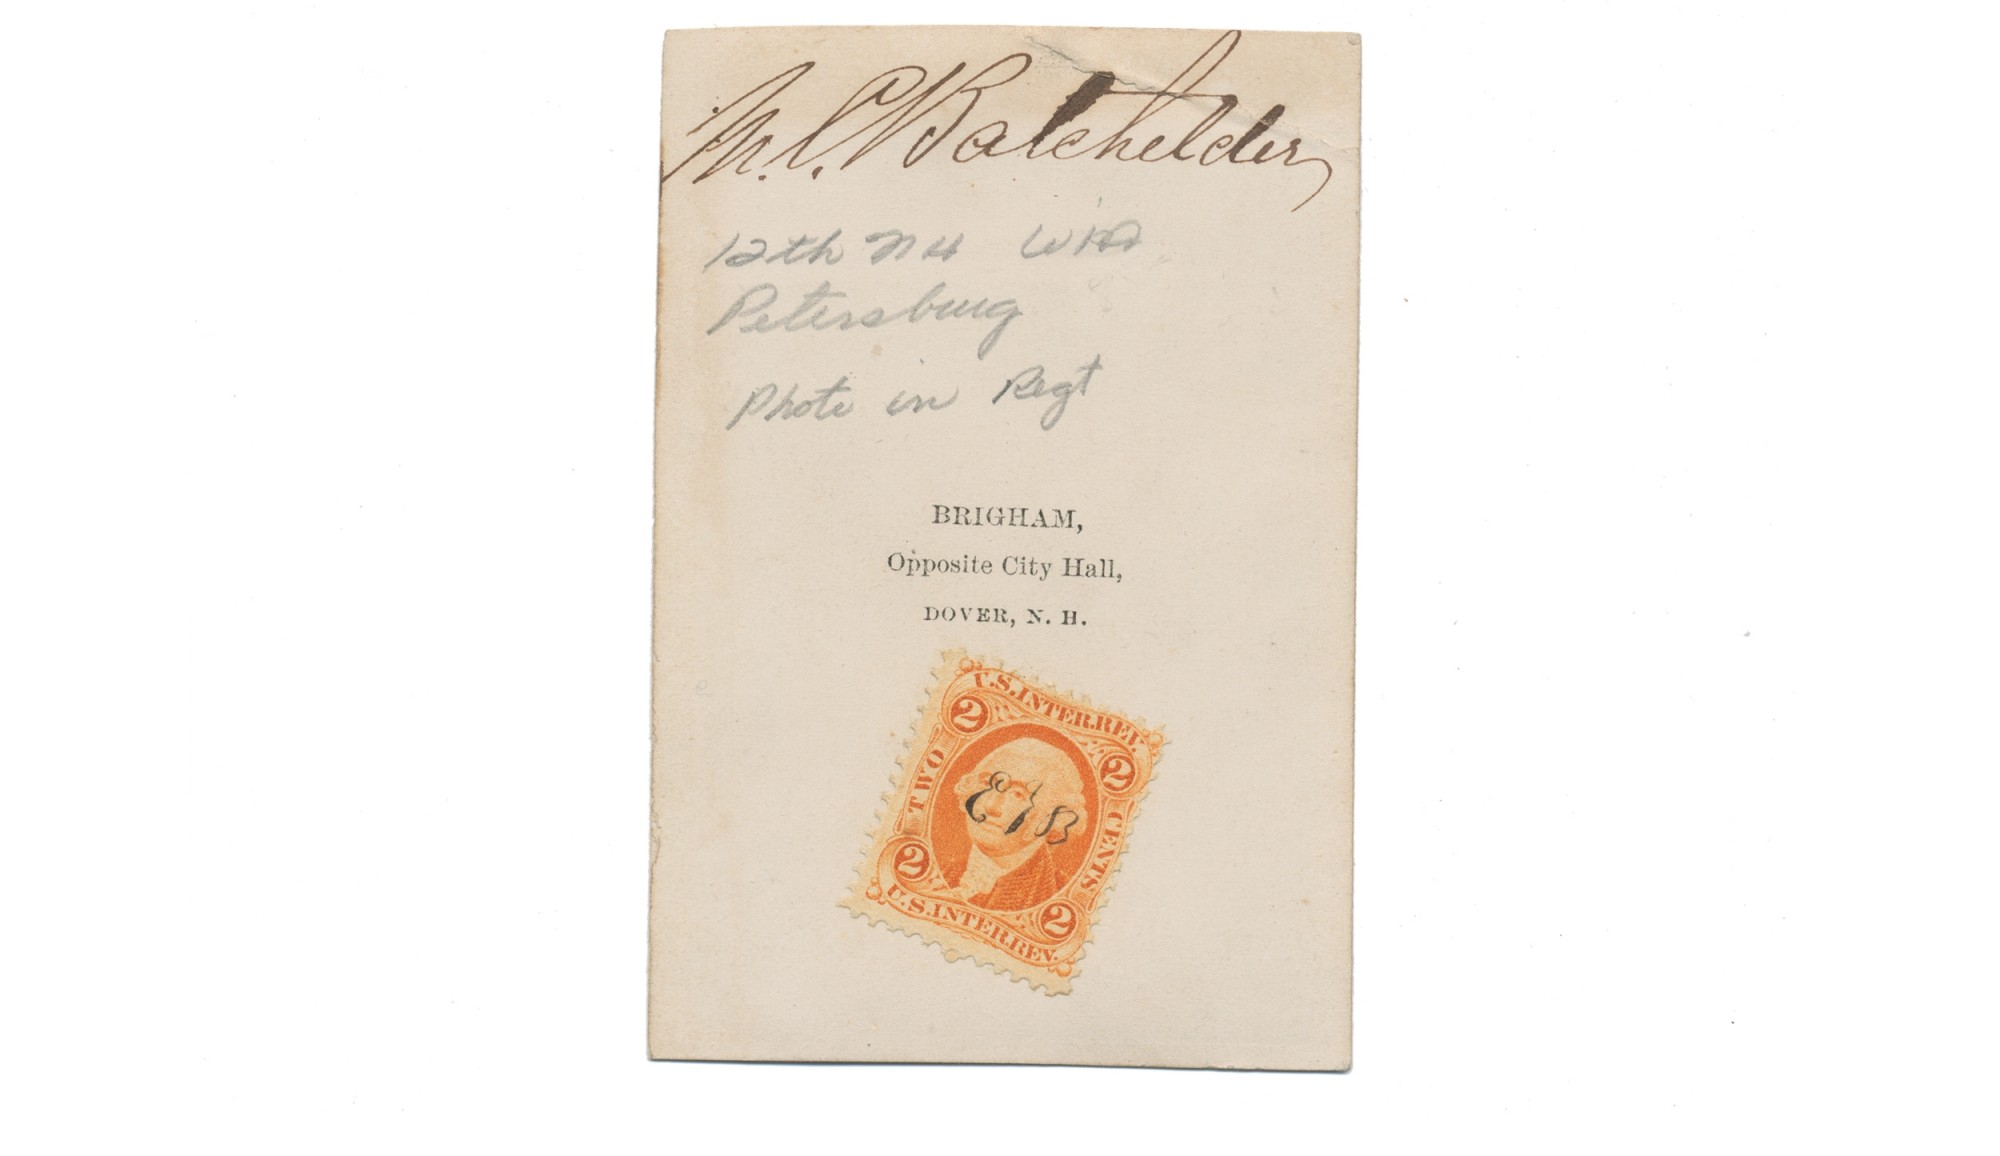 M. C. Batchelder
12th NH WIA
Petersburg
Photo in Regt
BRIGHAM,
Opposite City Hall,
DOVER, N. H.
U.S.INTER.REV.
2 2
TWO CENTS
2 2
U.S.INTER.REV.